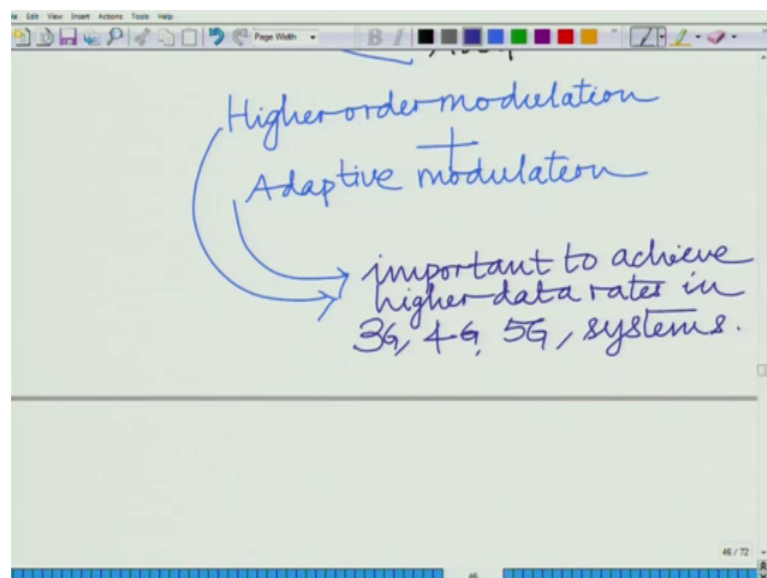 Edit View Insert Actions Tools Help
Page Width B I
Higher order modulation
+
Adaptive modulation
important to achieve
higher data rates in
3G, 4G, 5G, systems.
46 / 72
46